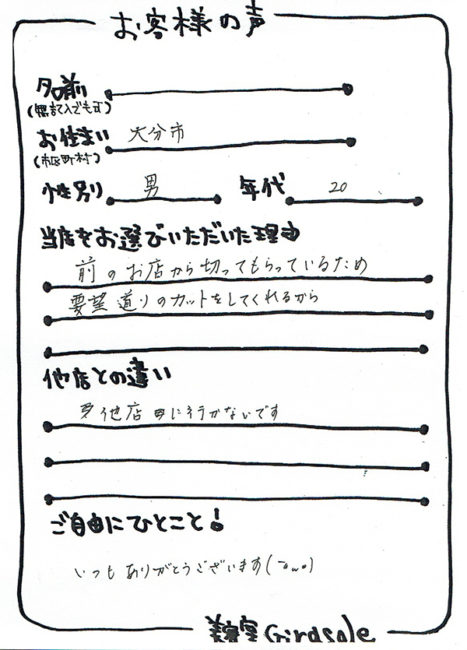 お客様の声
名前
(無記入でも可)
お住まい 大分市
(市区町村)
性別 男 年代 20
当店をお選びいただいた理由
前のお店から切ってもらっているため
要望通りのカットをしてくれるから
他店との違い
他店に行かないです
ご自由にひとこと!
いつもありがとうございます(-ω-)
美容室 Girasole